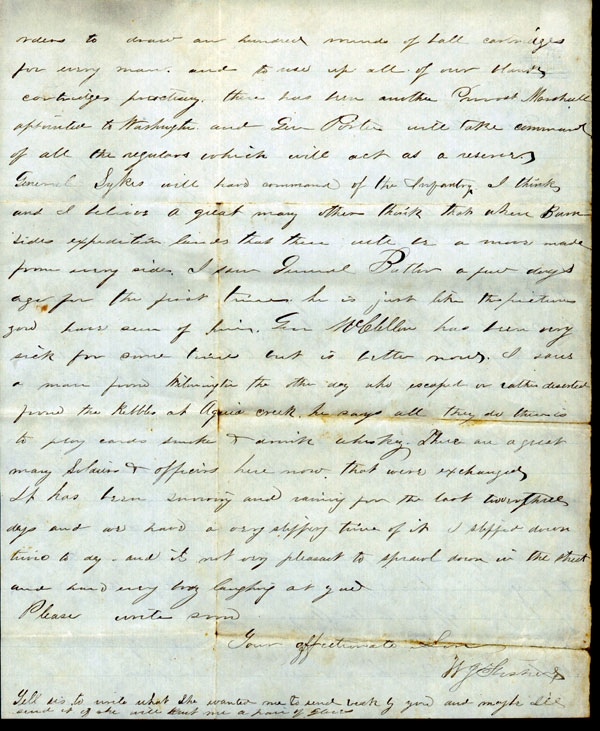 orders to draw an hundred rounds of ball cartridges
for every man. and to use up all of our blank
cartridges practising. there has been another Provost Marshall
appointed to Washington and Gen Porter will take command
of all the regulars which will act as a reserve
General Sykes will have command of the Infantry I think
and I believe a great many others think that when Burn
sides expedition lands that there will be a move made
from every side. I saw General Butler a few days
ago for the first time. he is just like the pictures
you have seen of him. Gen McClellan has been very
sick for some time but is better now. I saw
a man from Wilmington the other day who escaped or rather deserted
from the Rebbles at Aquia creek. he says all they do there is
to play cards smoke & drink whiskey. There are a great
many Soldiers & officers here now that were exchanged
It has been snowing and raining for the last two or three
days and we have a very slippy time of it I slipped down
twice to day. and it not very pleasant to sprawl down in the street
and have every body laughing at you
Please write soon
Your affectionate Son
W J Fisher
Tell Lis to write what she wanted me to send back by you and maybe Ill
send it if she will knit me a pair of